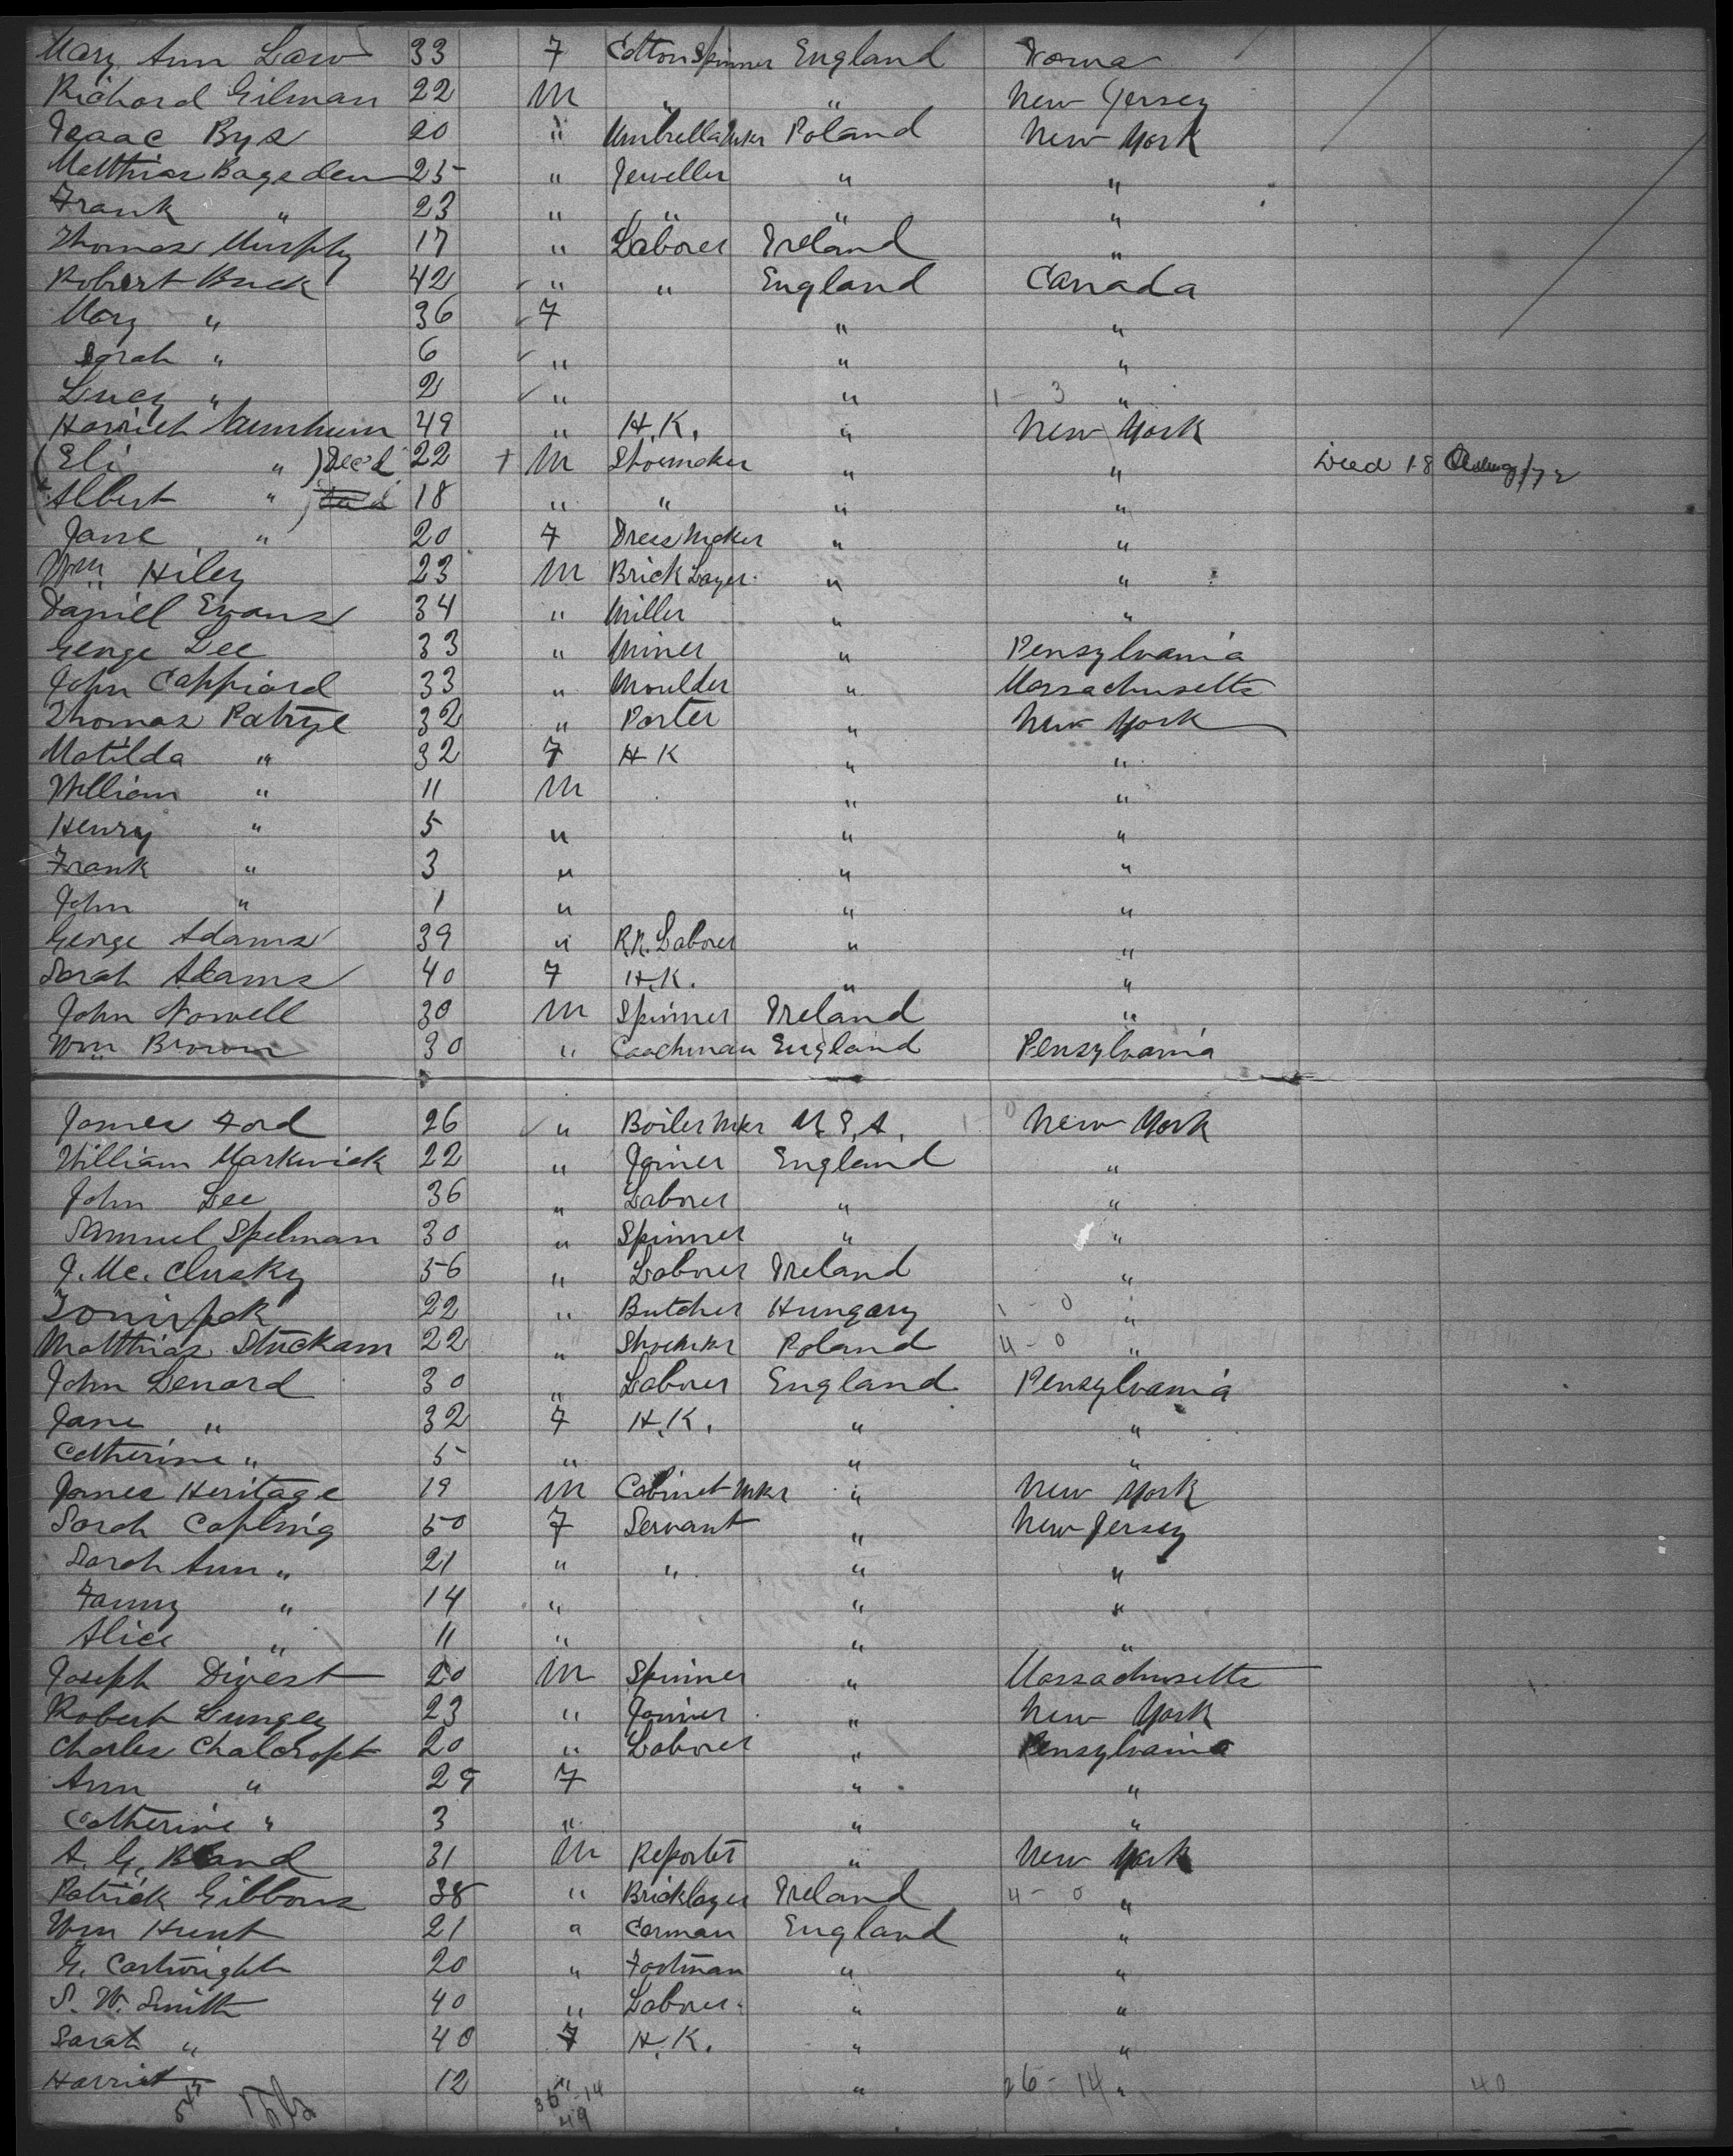 Mary Ann Law 33 F Cotton Spinner England Iowa
Richard Gilman 22 M " " New Jersey
Isaac Bys 20 " Umbrella Mkr Poland New York
Matthias Bagsden 25 " Jeweller " "
Frank " 23 " " " "
Thomas Murphy 17 " Laborer Ireland "
Robert Buck 42 " " England Canada
Mary " 36 F " "
Sarah " 6 " " "
Lucy " 2 " " 1 - 3 "
Harriet 49 " H.K. " New York
(Eli " ) Dec'd 22 + M Shoemaker " " Died 18 /72
(Albert " ) 18 " " " "
Jane " 20 F Dress Maker " "
Wm Hiley 23 M Brick Layer " "
Daniel Evans 34 " Miller " "
George Lee 33 " Miner " Pensylvania
John Cappiard 33 " Moulder " Massachusetts
Thomas 32 " Porter " New York
Matilda " 32 F H K " "
William " 11 M " "
Henry " 5 " " "
Frank " 3 " " "
John " 1 " " "
George Adams 39 " R.R. Laborer " "
Sarah Adams 40 F H.K. " "
John Nowell 30 M Spinner Ireland "
Wm Brown 30 " Coachman England Pensylvania
James Ford 26 " Boiler Mkr U.S.A. 1 - 0 New York
William Markwick 22 " Joiner England "
John Lee 36 " Laborer " "
Samuel Spelman 30 " Spinner " "
J. Mc. Clusky 56 " Laborer Ireland "
22 " Butcher Hungary 1 - 0 "
Matthias Stuckam 22 " Shoemkr Poland 4 - 0 "
John Lenard 30 " Laborer England Pensylvania
Jane " 32 F H.K. " "
Catherine " 5 " " "
James Heritage 19 M Cabinet Mkr " New York
Sarah Copling 50 F Servant " New Jersey
Sarah Ann " 21 " " " "
Fanny " 14 " " "
Alice " 11 " " "
Joseph Divest 20 M Spinner " Massachusetts
Robert Lungey 23 " Joiner " New York
Charles Chalcroft 20 " Laborer " Pensylvania
Ann " 29 F " "
Catherine " 3 " " "
A. G. Bland 31 M Reporter " New York
Patrick Gibbons 38 " Bricklayer Ireland 4 - 0 "
Wm Hunt 21 " Carman England "
G. Cartwright 20 " Footman " "
S. W. Smith 40 " Laborer " "
Sarah " 40 F H.K. " "
Harriet 12 " " 26 - 14 " 40
35 - 14
49